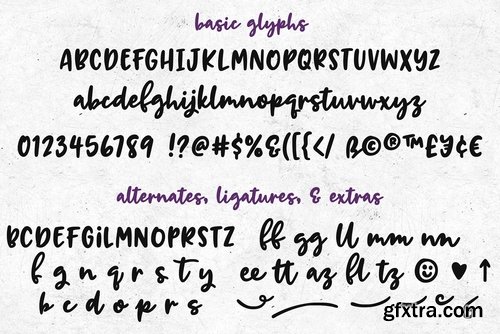 basic glyphs
ABCDEFGHIJKLMNOPQRSTUVWXYZ
abcdefghijklmnopqrstuvwxyz
0123456789 !?@#$%&([{</ ß©®™£¥¢€
alternates, ligatures, & extras
BCDFGiLMNOPRSTZ ff gg ll mm nn
f g n q r s t y ee tt az fl tz ☺ ♥ ↑
b c d o p r s
gfxtra.com